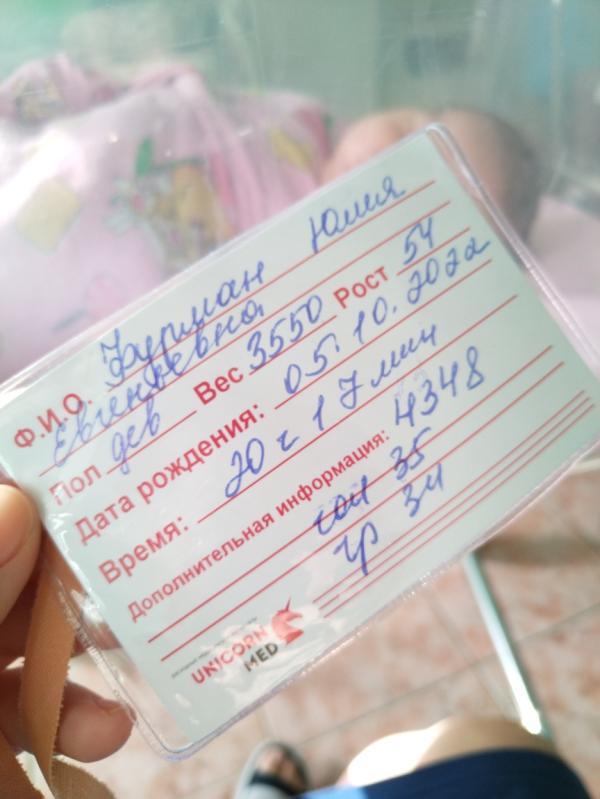 Ф.И.О. Фурман Юлия
Евгеньевна
Пол дев Вес 3550 Рост 54
Дата рождения: 05.10.2022
Время: 20 ч 17 мин
Дополнительная информация: 4348
гол 35
гр 34
UNICORN
MED